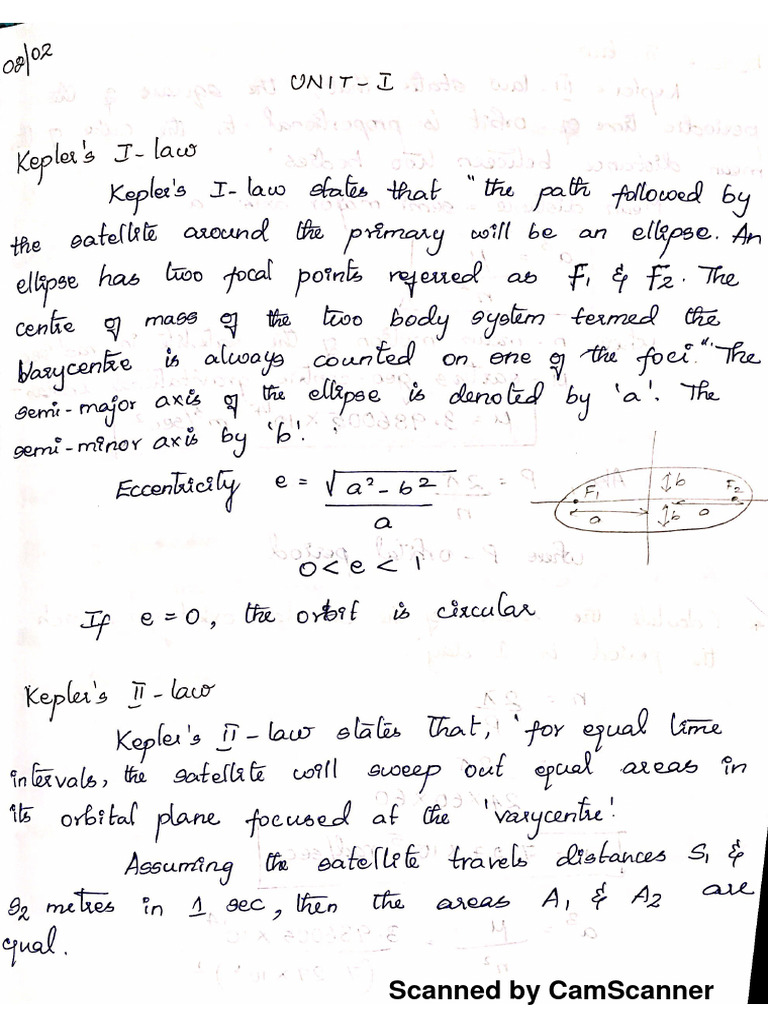 08/02
UNIT-I
Kepler's I-law
Kepler's I-law states that "the path followed by
the satellite around the primary will be an ellipse. An
ellipse has two focal points referred as F1 & F2. The
centre of mass of the two body system termed the
varycentre is always counted on one of the foci". The
semi-major axis of the ellipse is denoted by 'a'. The
semi-minor axis by 'b'.
Eccentricity e = √a²-b² / a
F1 b F2
a b a
0<e<1
If e=0, the orbit is circular
Kepler's II-law
Kepler's II-law states that, 'for equal time
intervals, the satellite will sweep out equal areas in
its orbital plane focused at the 'varycentre'.
Assuming the satellite travels distances S1 &
S2 metres in 1 sec, then the areas A1 & A2 are
equal.
Scanned by CamScanner